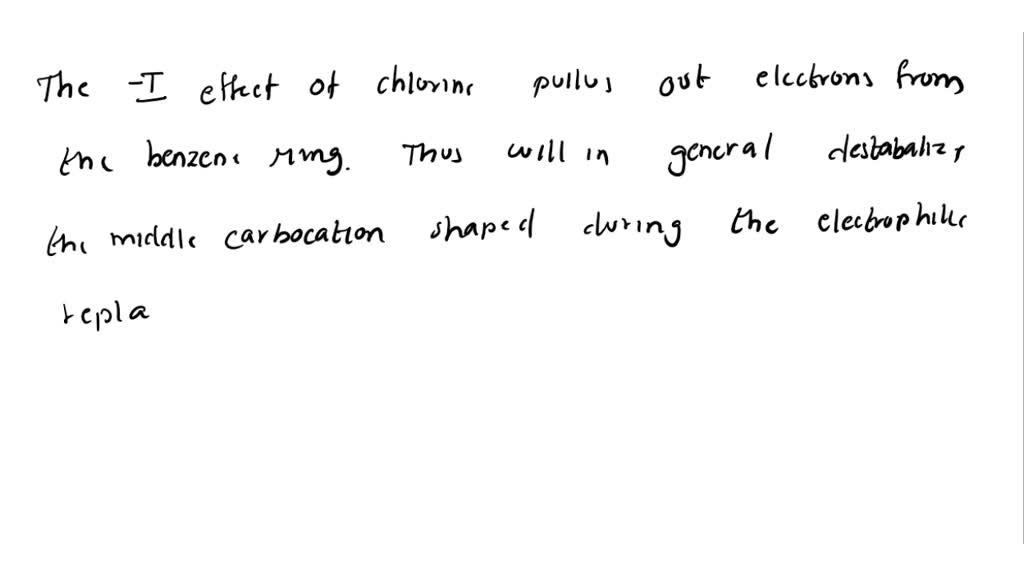 The -I effect of chlorine pullus out electrons from
the benzene ring. Thus will in general destabalize
the middle carbocation shaped during the electrophilic
repla